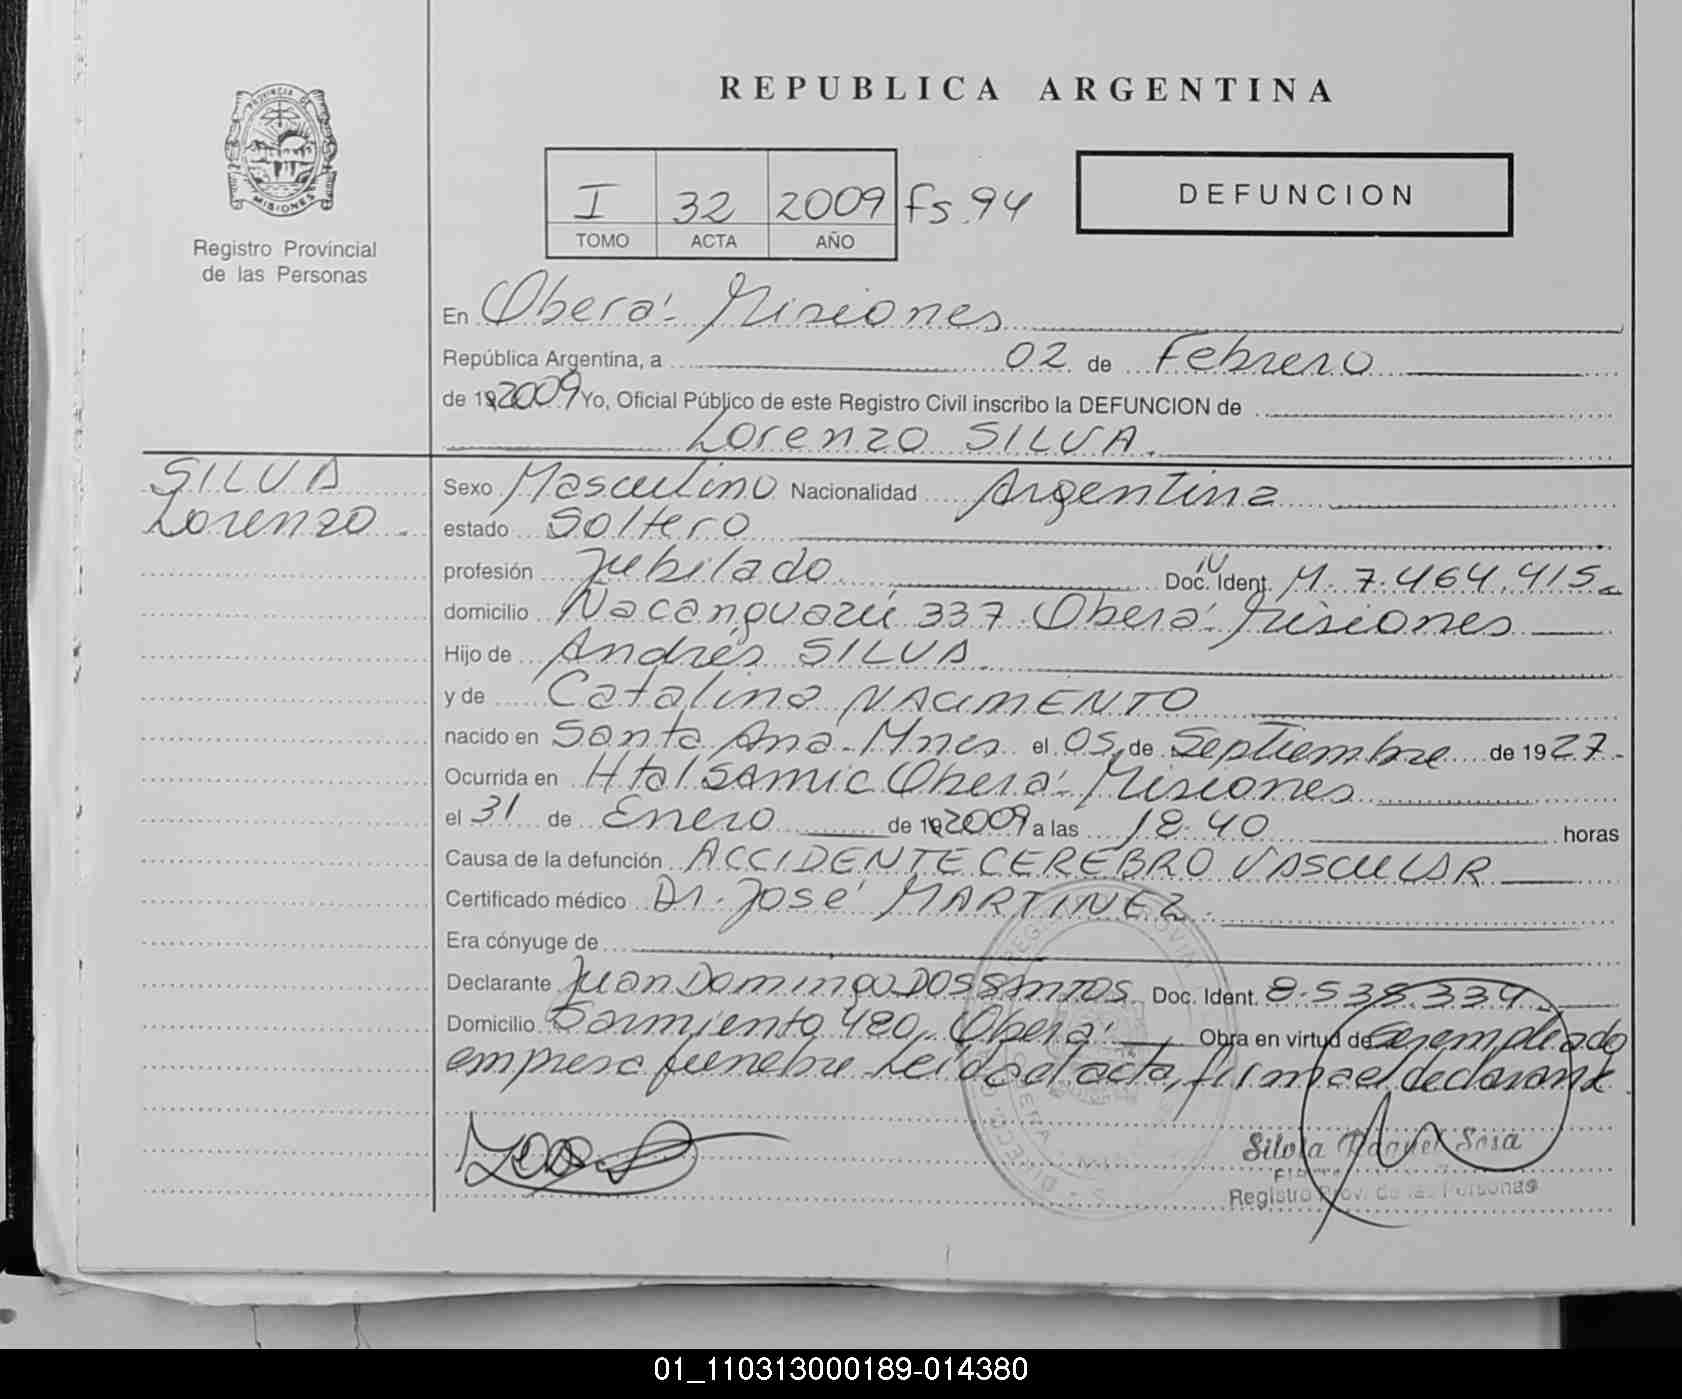 REPUBLICA ARGENTINA
PROVINCIA DE
MISIONES
Registro Provincial
de las Personas
I 32 2009 fs. 94
TOMO ACTA AÑO
DEFUNCION
En Oberá - Misiones
República Argentina, a 02 de Febrero
de 19 2009 Yo, Oficial Público de este Registro Civil inscribo la DEFUNCION de
Lorenzo SILVA.
SILVA
Lorenzo
Sexo Masculino Nacionalidad Argentina
estado Soltero
profesión Jubilado Doc. Ident. M. 7.464.415
domicilio Ñacanguazú 337 Oberá - Misiones
Hijo de Andrés SILVA.
y de Catalina NACIMENTO
nacido en Santa Ana - Mnes el 05 de Septiembre de 1927.
Ocurrida en Htal SAMIC Oberá - Misiones
el 31 de Enero de 19 2009 a las 18:40 horas
Causa de la defunción ACCIDENTE CEREBRO VASCULAR
Certificado médico Dr. José MARTINEZ.
Era cónyuge de
Declarante Juan Domingo DOSSANTOS Doc. Ident. 8.538.334
Domicilio Sarmiento 480, Oberá Obra en virtud de ser empleado
empresa fúnebre Leída el acta, firma el declarante
Silvia Raquel Sosa
Registro Prov. de las Personas
01_110313000189-014380